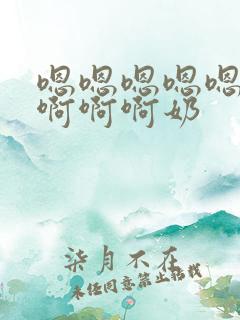 嗯嗯嗯嗯嗯
啊啊啊奶
柒月不在
未经同意禁止转载